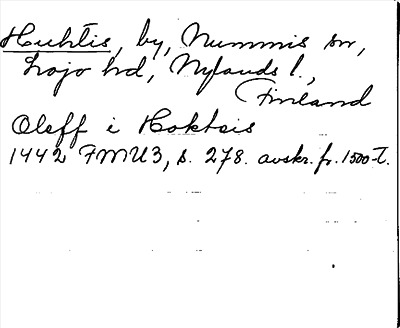 Huhtis, by, Nummis sn,
Lojo hd, Nylands l.,
Finland
Oleff i Hoktois
1442 FMU3, s. 278. avskr. fr. 1500-t.